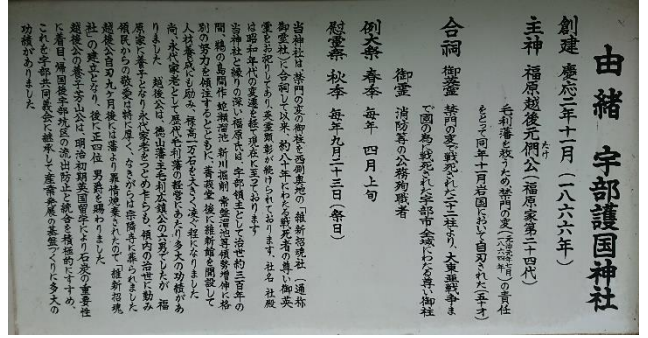 由緒 宇部護国神社
創建 慶応二年十一月(一八六六年)
主神 福原越後元僴公(福原家第二十四代)
たけ
毛利藩を救うため禁門の変(元治元年七月一八六四年)の責任
をとって同年十一月岩国において自刃された(五十才)
合祠 御英霊 禁門の変で戦死された二十二柱より、大東亜戦争ま
で国の為戦死された宇部市全域にわたる尊い御柱
御霊 消防等の公務殉職者
例大祭 春季 毎年 四月上旬
慰霊祭 秋季 毎年九月二十三日(祭日)
当神社は、禁門の変の御柱を西側奥地の「維新招魂社」(通称
御霊社)に合祠して以来、約八十年にわたる戦死者の尊い御英
霊をお祀りしてあり、英霊顕彰が続けられております。社名、社殿
は昭和年代の変遷を経て現在に至っております
当神社と縁りの深い福原氏は、宇部領主として治世約三百年の
間、鵜の島開作、蛇瀬溜池、新川掘削、常盤溜池等領勢増伸に格
別の努力を傾注するとともに、菁莪堂、後に維新館を開設して
人材養成にも励み、禄高一万石を大きく凌ぐ程になりました
尚、永代家老として歴代毛利藩の経営にあたり多大の功績があ
りました 越後公は、徳山藩主毛利広鎮公の六男でしたが、福
原家へ養子となり永代家老をつとめをらも、領内の治世に励み
領民からの敬愛は特に厚く、なきがらは宗隣寺に葬られました
越後公自刃九ヶ月後には藩より罪情焼棄されたので「維新招魂
社」の建立となり、後に正四位 男爵を賜わりました
越後公の養子芳山公は、明治初期英国留学により石炭の重要性
に着目、帰国後宇部坑区の流出防止と統合を積極的にすすめ、
これを宇部共同義会に継承して産業発展の基盤づくりに多大の
功績がありました